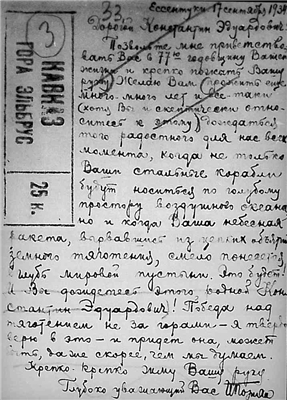 33
Ессентуки 17 сентября 193
Дорогой Константин Эдуардович!
Позвольте мне приветство
вать Вас в 77ю годовщину Вашей
жизни и крепко пожать Вашу
руку. Желаю Вам прожить еще
много-много лет и все-таки
(хотя Вы и скептически отно
ситесь к этому) дождаться
того радостного для нас всех
момента, когда не только
Ваши стальные корабли
будут носиться по голубому
простору воздушного океана
но и когда Ваша небесная
ракета, вырвавшись из цепких объят
земного тяготения, смело понесется
в глубь мировой пустыни. Это будет!
И Вы дождетесь этого родной Кон
стантин Эдуардович! Победа над
тяготением не за горами - я твердо
верю в это - и придет она, может
быть, даже скорее, чем мы думаем.
Крепко-крепко жму Вашу руку
Глубоко уважающий Вас
3
КАВКАЗ
ГОРА ЭЛЬБРУС
25 к.